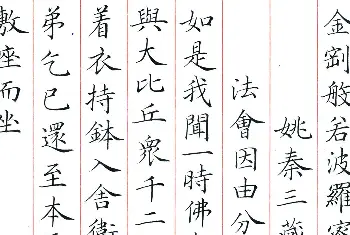 金剛般若波羅
姚秦三藏
法會因由分
如是我聞一時佛
與大比丘眾千二
着衣持鉢入舍衛
弟乞已還至本
敷座而坐